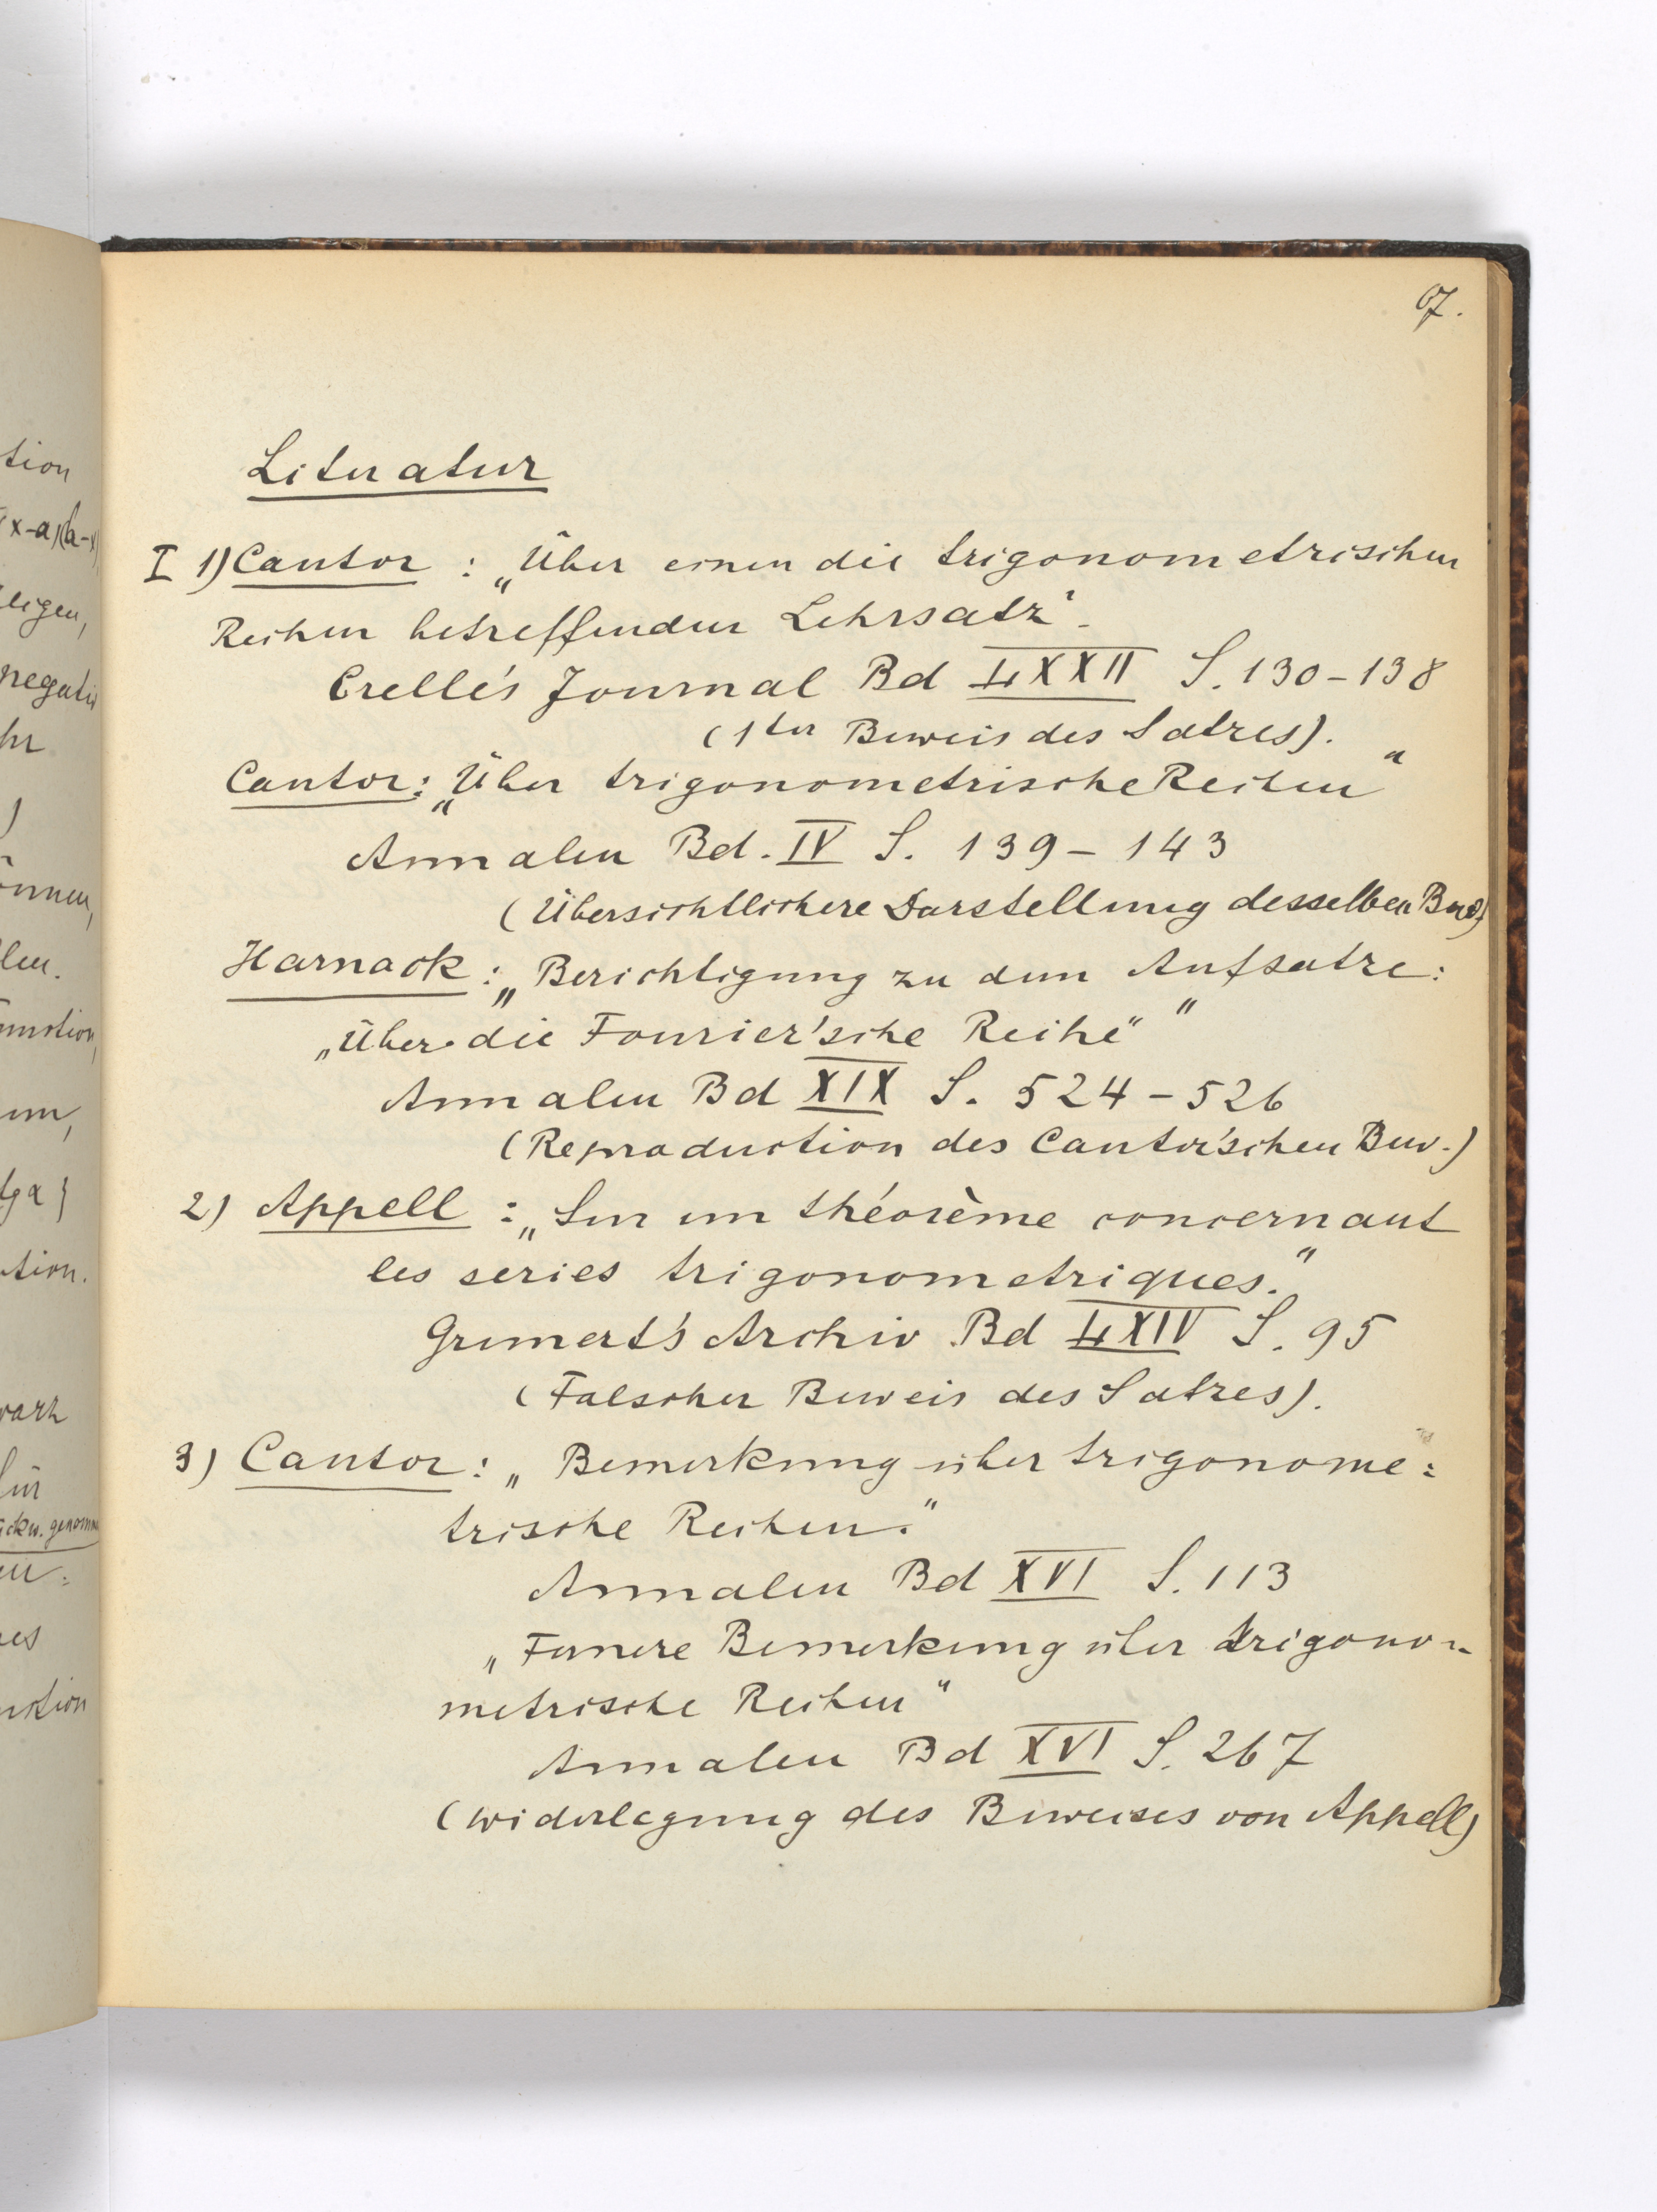 67.
Literatur
I 1) Cantor : „Über einen die trigonometrischen
Reihen betreffenden Lehrsatz“.
Crelle's Journal Bd LXXII S. 130-138
(1ter Beweis des Satzes).
Cantor: „Über trigonometrische Reihen“
Annalen Bd. IV S. 139-143
(Übersichtlichere Darstellung desselben Bws)
Harnack: „Berichtigung zu dem Aufsatze:
„Über die Fourier'sche Reihe“ “
Annalen Bd XIX S. 524-526
(Reproduction des Cantor'schen Bew.)
2) Appell : „Sur un théorème concernant
les series trigonometriques.“
Grunert's Archiv Bd LXIV S. 95
(Falscher Beweis des Satzes).
3) Cantor: „Bemerkung über trigonome=
trische Reihen.“
Annalen Bd XVI S. 113
„Fernere Bemerkung über trigono=
metrische Reihen“
Annalen Bd XVI S. 267
(Widerlegung des Beweises von Appell)
tion
(x-a)(b-x)
ligen,
negativ
hr
önnen,
len.
unction,
um,
tion.
für
rückw. genomm
nction